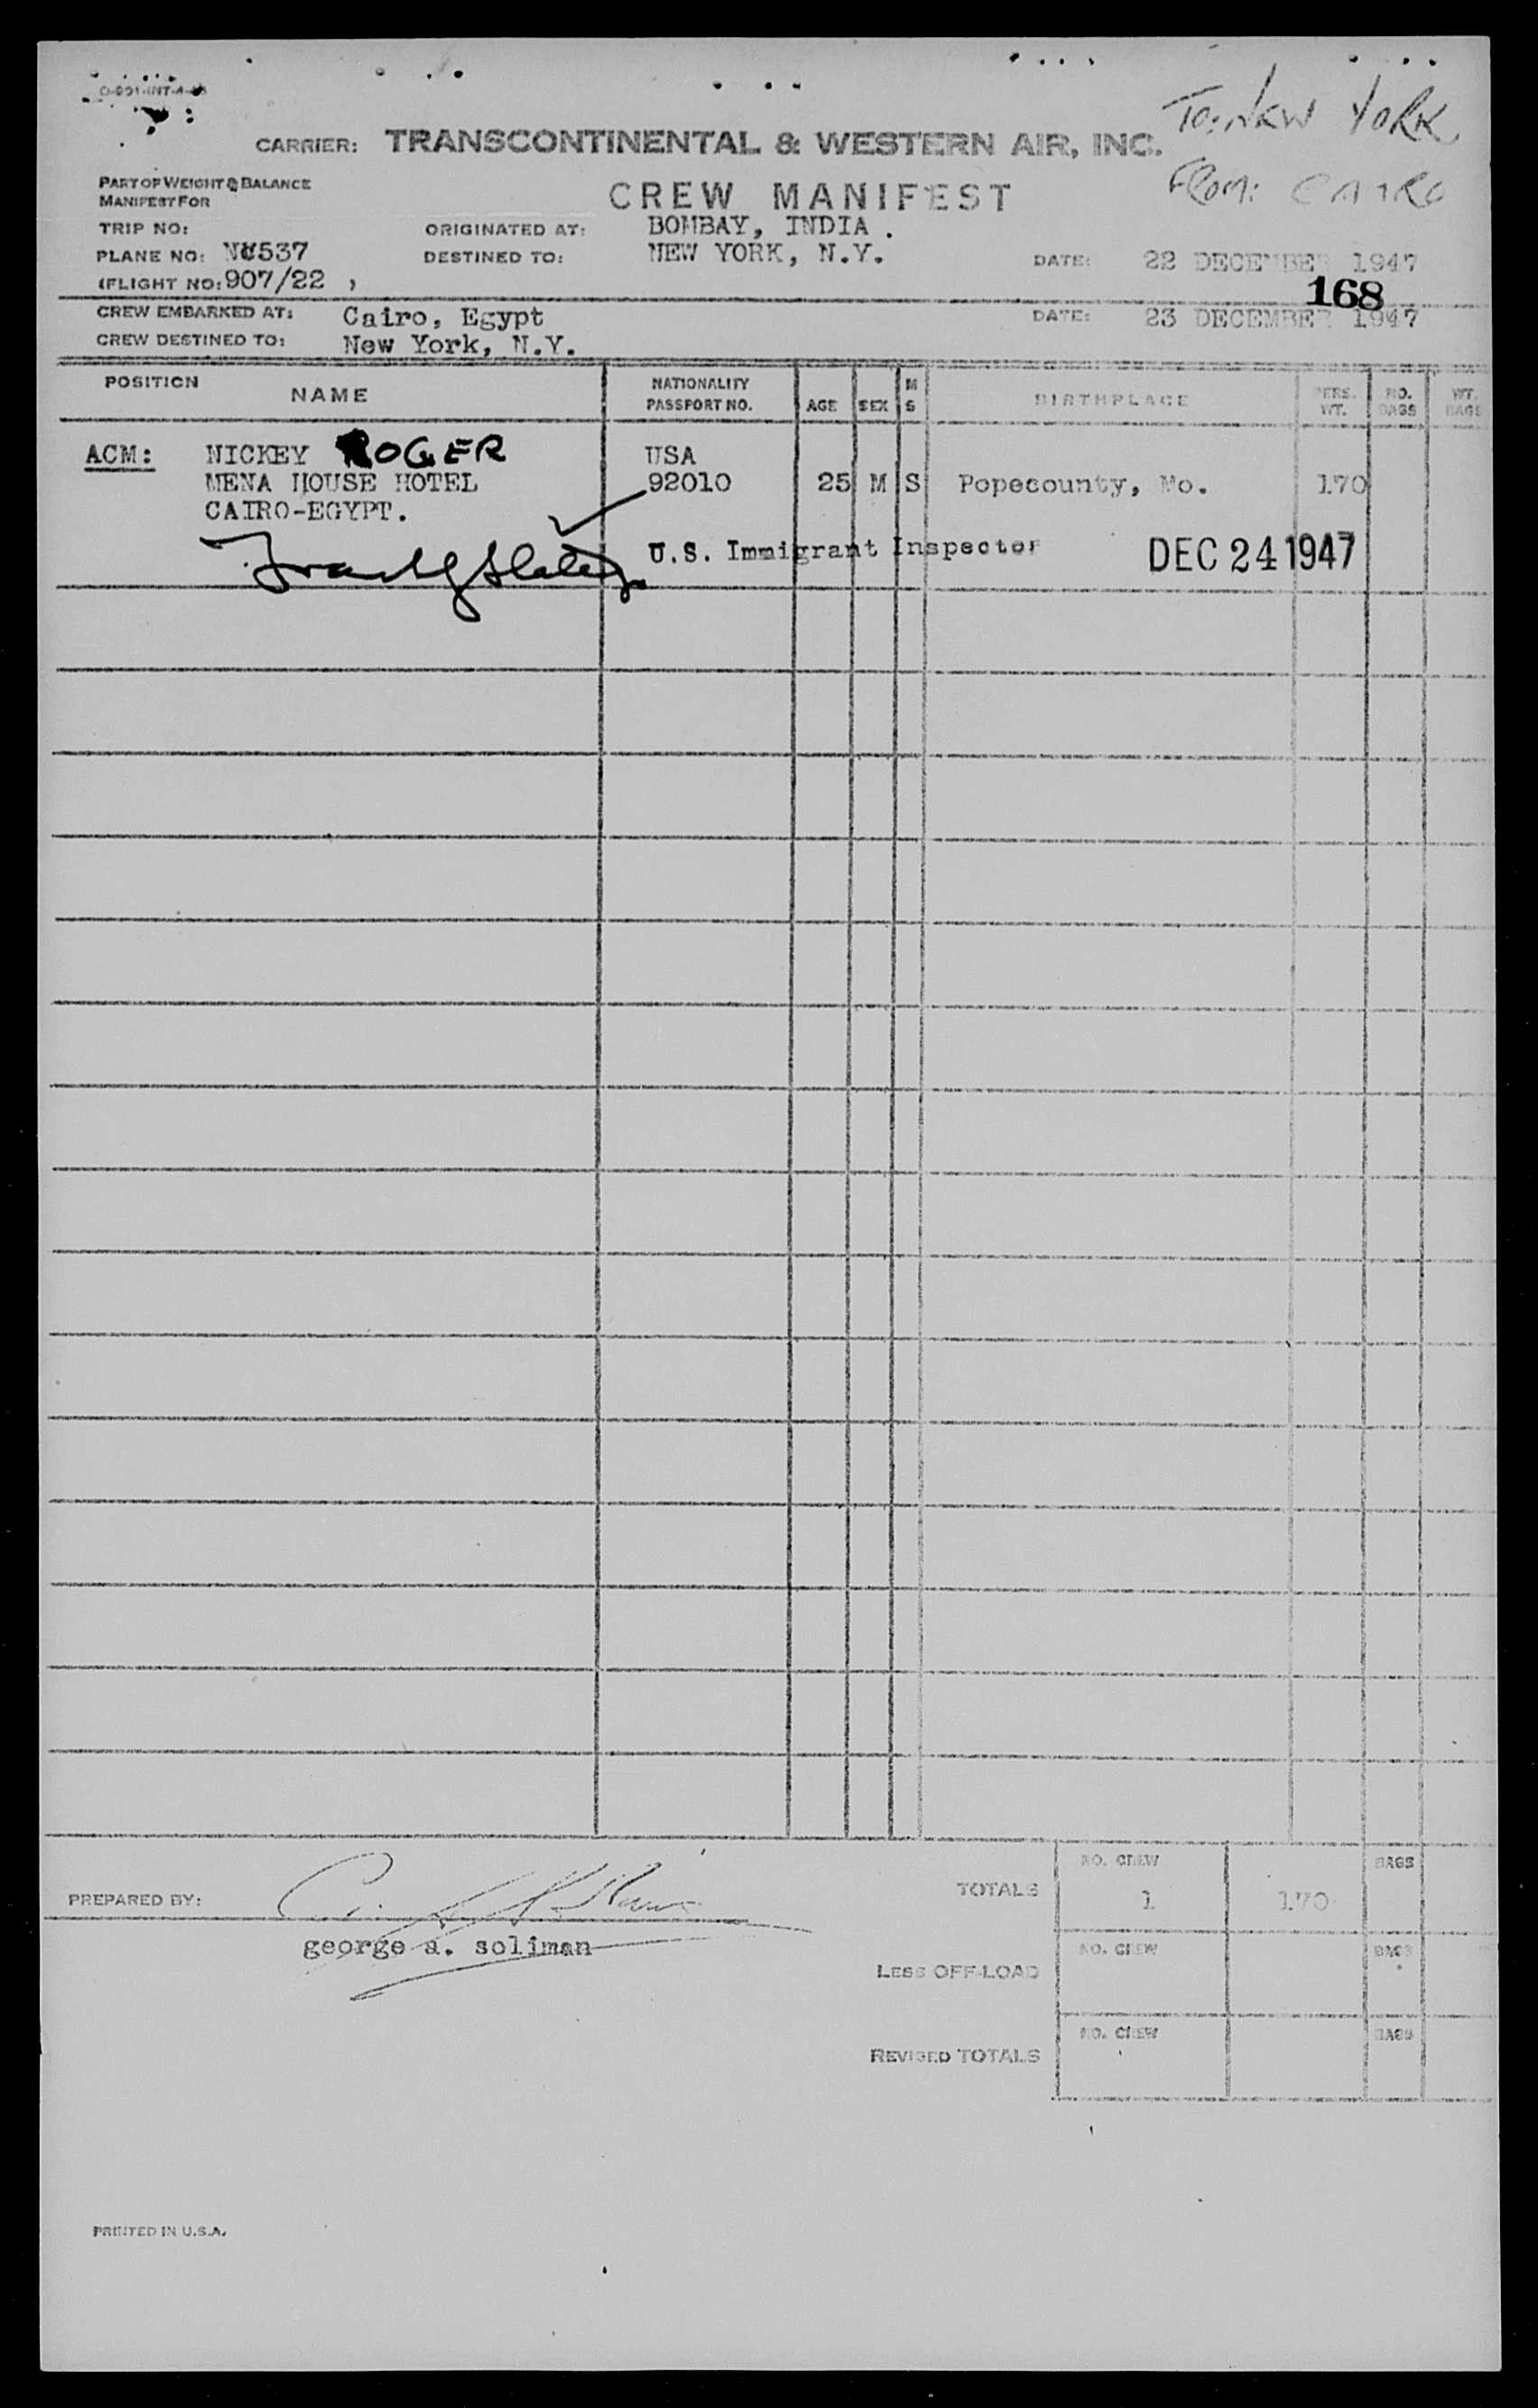 To: NEW YORK
CARRIER: TRANSCONTINENTAL & WESTERN AIR, INC.
From: CAIRO
PART OF WEIGHT & BALANCE
MANIFEST FOR
CREW MANIFEST
TRIP NO: ORIGINATED AT: BOMBAY, INDIA .
PLANE NO: NC537 DESTINED TO: NEW YORK, N.Y. DATE: 22 DECEMBER 1947
(FLIGHT NO: 907/22 ,
168
CREW EMBARKED AT: Cairo, Egypt DATE: 23 DECEMBER 1947
CREW DESTINED TO: New York, N.Y.
POSITION NAME NATIONALITY PASSPORT NO. AGE SEX M S BIRTHPLACE PERS. WT. NO. BAGS WT. BAGS
ACM: NICKEY ROGER USA
MENA HOUSE HOTEL 92010 25 M S Popecounty, Mo. 170
CAIRO-EGYPT.
U.S. Immigrant Inspector DEC 24 1947
NO. CREW BAGS
PREPARED BY: TOTALS 1 170
george a. soliman
NO. CREW BAGS
LESS OFF-LOAD
NO. CREW BAGS
REVISED TOTALS
PRINTED IN U.S.A.